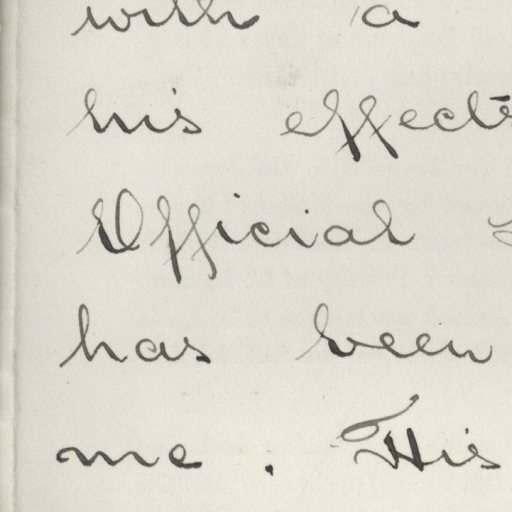 with a
his effects
Official
has been
me. His